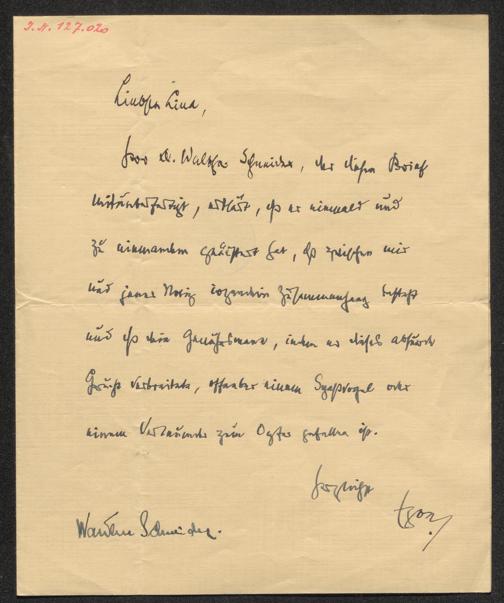 I.N. 127.020
Liebster Lina,
Herr Dr. Walther Schneider, der diesen Brief
mitunterfertigt, erklärt, daß er niemals und
zu niemandem geäußert hat, daß zwischen mir
und jener Notiz irgendein Zusammenhang besteht
und daß dein Gewährsmann, indem er dieses absurde
Gerücht verbreitete, offenbar einem Spaßvogel oder
einem Verleumder zum Opfer gefallen ist.
Herzlichst
Egon
Walther Schneider.